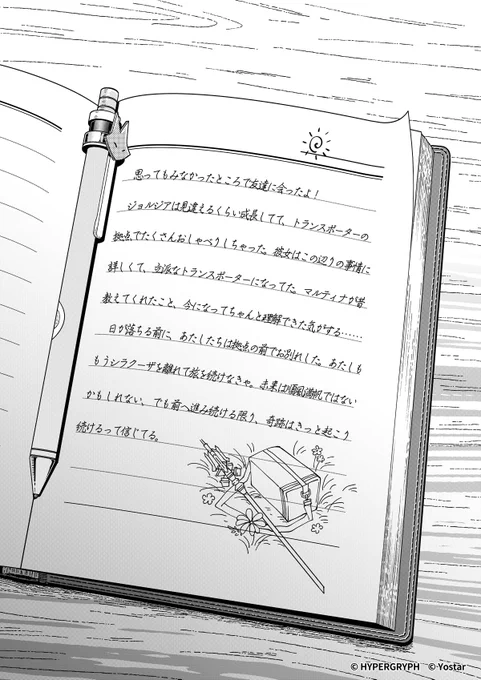 思ってもみなかったところで友達に会ったよ！
ジョルジアは見違えるくらい成長してて、トランスポーターの
拠点でたくさんおしゃべりしちゃった。彼女はこの辺りの事情に
詳しくて、立派なトランスポーターになってた。マルティナが昔
教えてくれたこと、今になってちゃんと理解できた気がする……
日が落ちる前に、あたしたちは拠点の前でお別れした。あたしも
もうシラクーザを離れて旅を続けなきゃ。未来は順風満帆ではない
かもしれない、でも前へ進み続ける限り、奇跡はきっと起こり
続けるって信じてる。
© HYPERGRYPH © Yostar